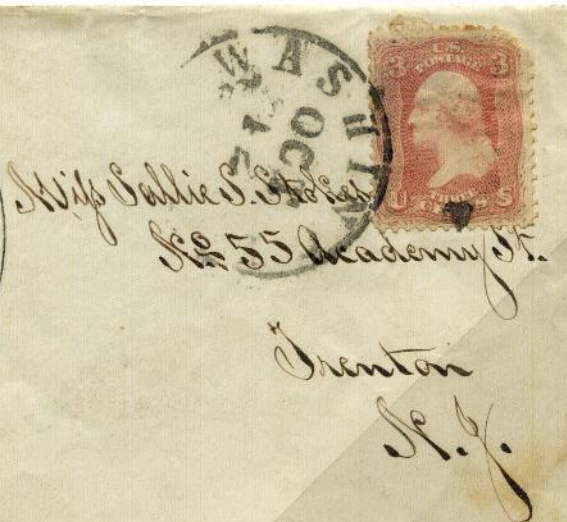 WASHIN
OCT
U.S.
POSTAGE
3 3
U THREE S
CENTS
Miss Sallie S. Stokes
No 55 Academy St.
Trenton
N. J.